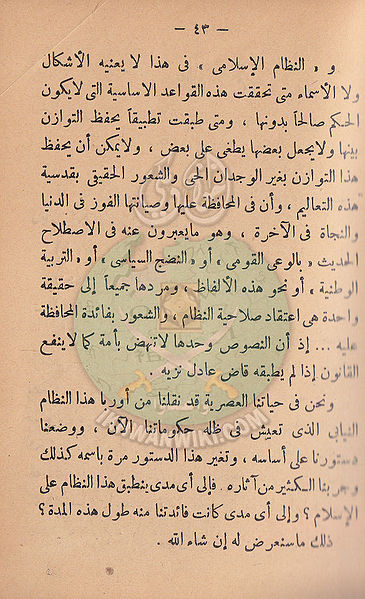 — ٤٣ —
و « النظام الإسلامى » فى هذا لا يعنيه الأشكال
ولا الأسماء متى تحققت هذه القواعد الاساسية التى لايكون
الحكم صالحاً بدونها ، ومتى طبقت تطبيقاً يحفظ التوازن
بينها ولايجعل بعضها يطغى على بعض ، ولايمكن أن يحفظ
هذا التوازن بغير الوجدان الحى والشعور الحقيقى بقدسية
هذه التعاليم ، وأن فى المحافظة عليها وصيانتها الفوز فى الدنيا
والنجاة فى الآخرة ، وهو مايعبرون عنه فى الاصطلاح
الحديث « بالوعى القومى » أو « النضج السياسى » أو « التربية
الوطنية » أو نحو هذه الألفاظ ، ومردها جميعاً إلى حقيقة
واحدة هى اعتقاد صلاحية النظام ، والشعور بفائدة المحافظة
عليه ... إذ أن النصوص وحدها لاتنهض بأمة كما لاينفع
القانون إذا لم يطبقه قاض عادل نزيه .
ونحن فى حياتنا العصرية قد نقلنا من أوربا هذا النظام
النيابى الذى تعيش فى ظله حكوماتنا الآن ، ووضعنا
دستورنا على أساسه ، وتغير هذا الدستور مرة باسمه كذلك
وجربنا الكثير من آثاره . فإلى أى مدى ينطبق هذا النظام على
الإسلام ؟ وإلى أى مدى كانت فائدتنا منه طول هذه المدة ؟
ذلك ماسنعرض له إن شاء الله .
IKHWANWIKI.COM